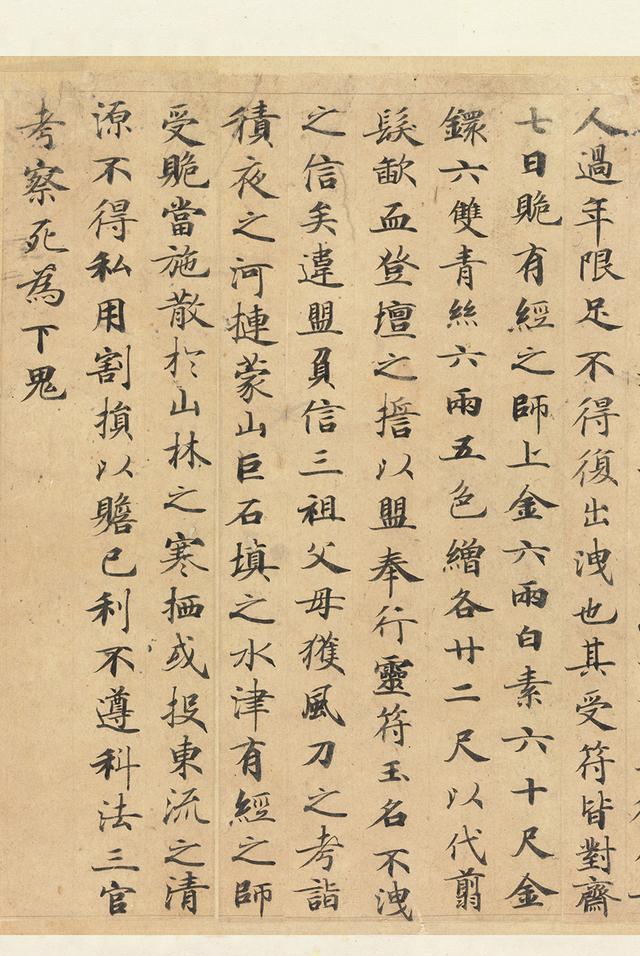 人過年限足不得復出洩也其受符皆對齋
七日賝有經之師上金六兩白素六十尺金
鐶六雙青絲六兩五色繒各廿二尺以代翦
髮歃血登壇之誓以盟奉行靈符玉名不洩
之信矣違盟負信三祖父母獲風刀之考詣
積夜之河摙蒙山巨石填之水津有經之師
受賝當施散於山林之寒栖或投東流之清
源不得私用割損以贍己利不遵科法三官
考察死為下鬼